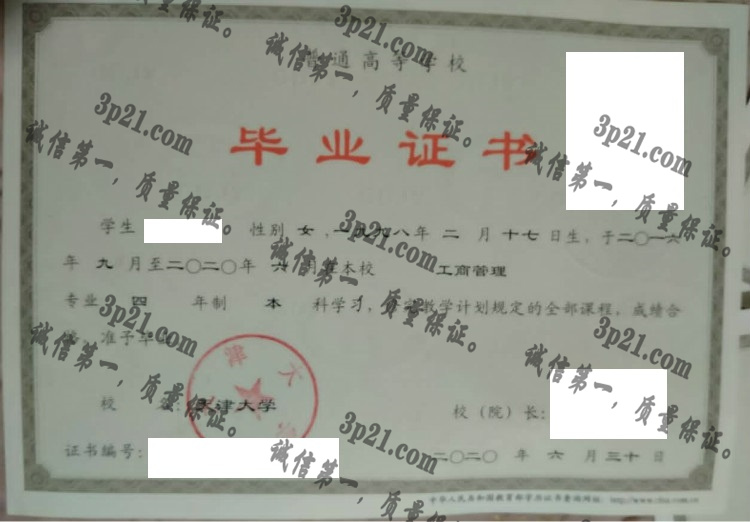 普通高等学校
毕业证书
学生 性别 女，一九九八年 二 月 十七日生，于二〇一六
年 九 月至二〇二〇年 六 月在本校 工商管理
专业 四 年制 本 科学习，教学计划规定的全部课程，成绩合
准予毕
校 天津大学 校（院）长：
证书编号： 二〇二〇 年 六 月三十日
中华人民共和国教育部学历证书查询网址：http://www.chsi.com.cn
3p21.com
诚信第一，质量保证。
3p21.com
诚信第一，质量保证。
3p21.com
诚信第一，质量保证。
3p21.com
诚信第一，质量保证。
3p21.com
诚信第一，质量保证。
3p21.com
诚信第一，质量保证。
3p21.com
诚信第一，质量保证。
3p21.com
诚信第一，质量保证。